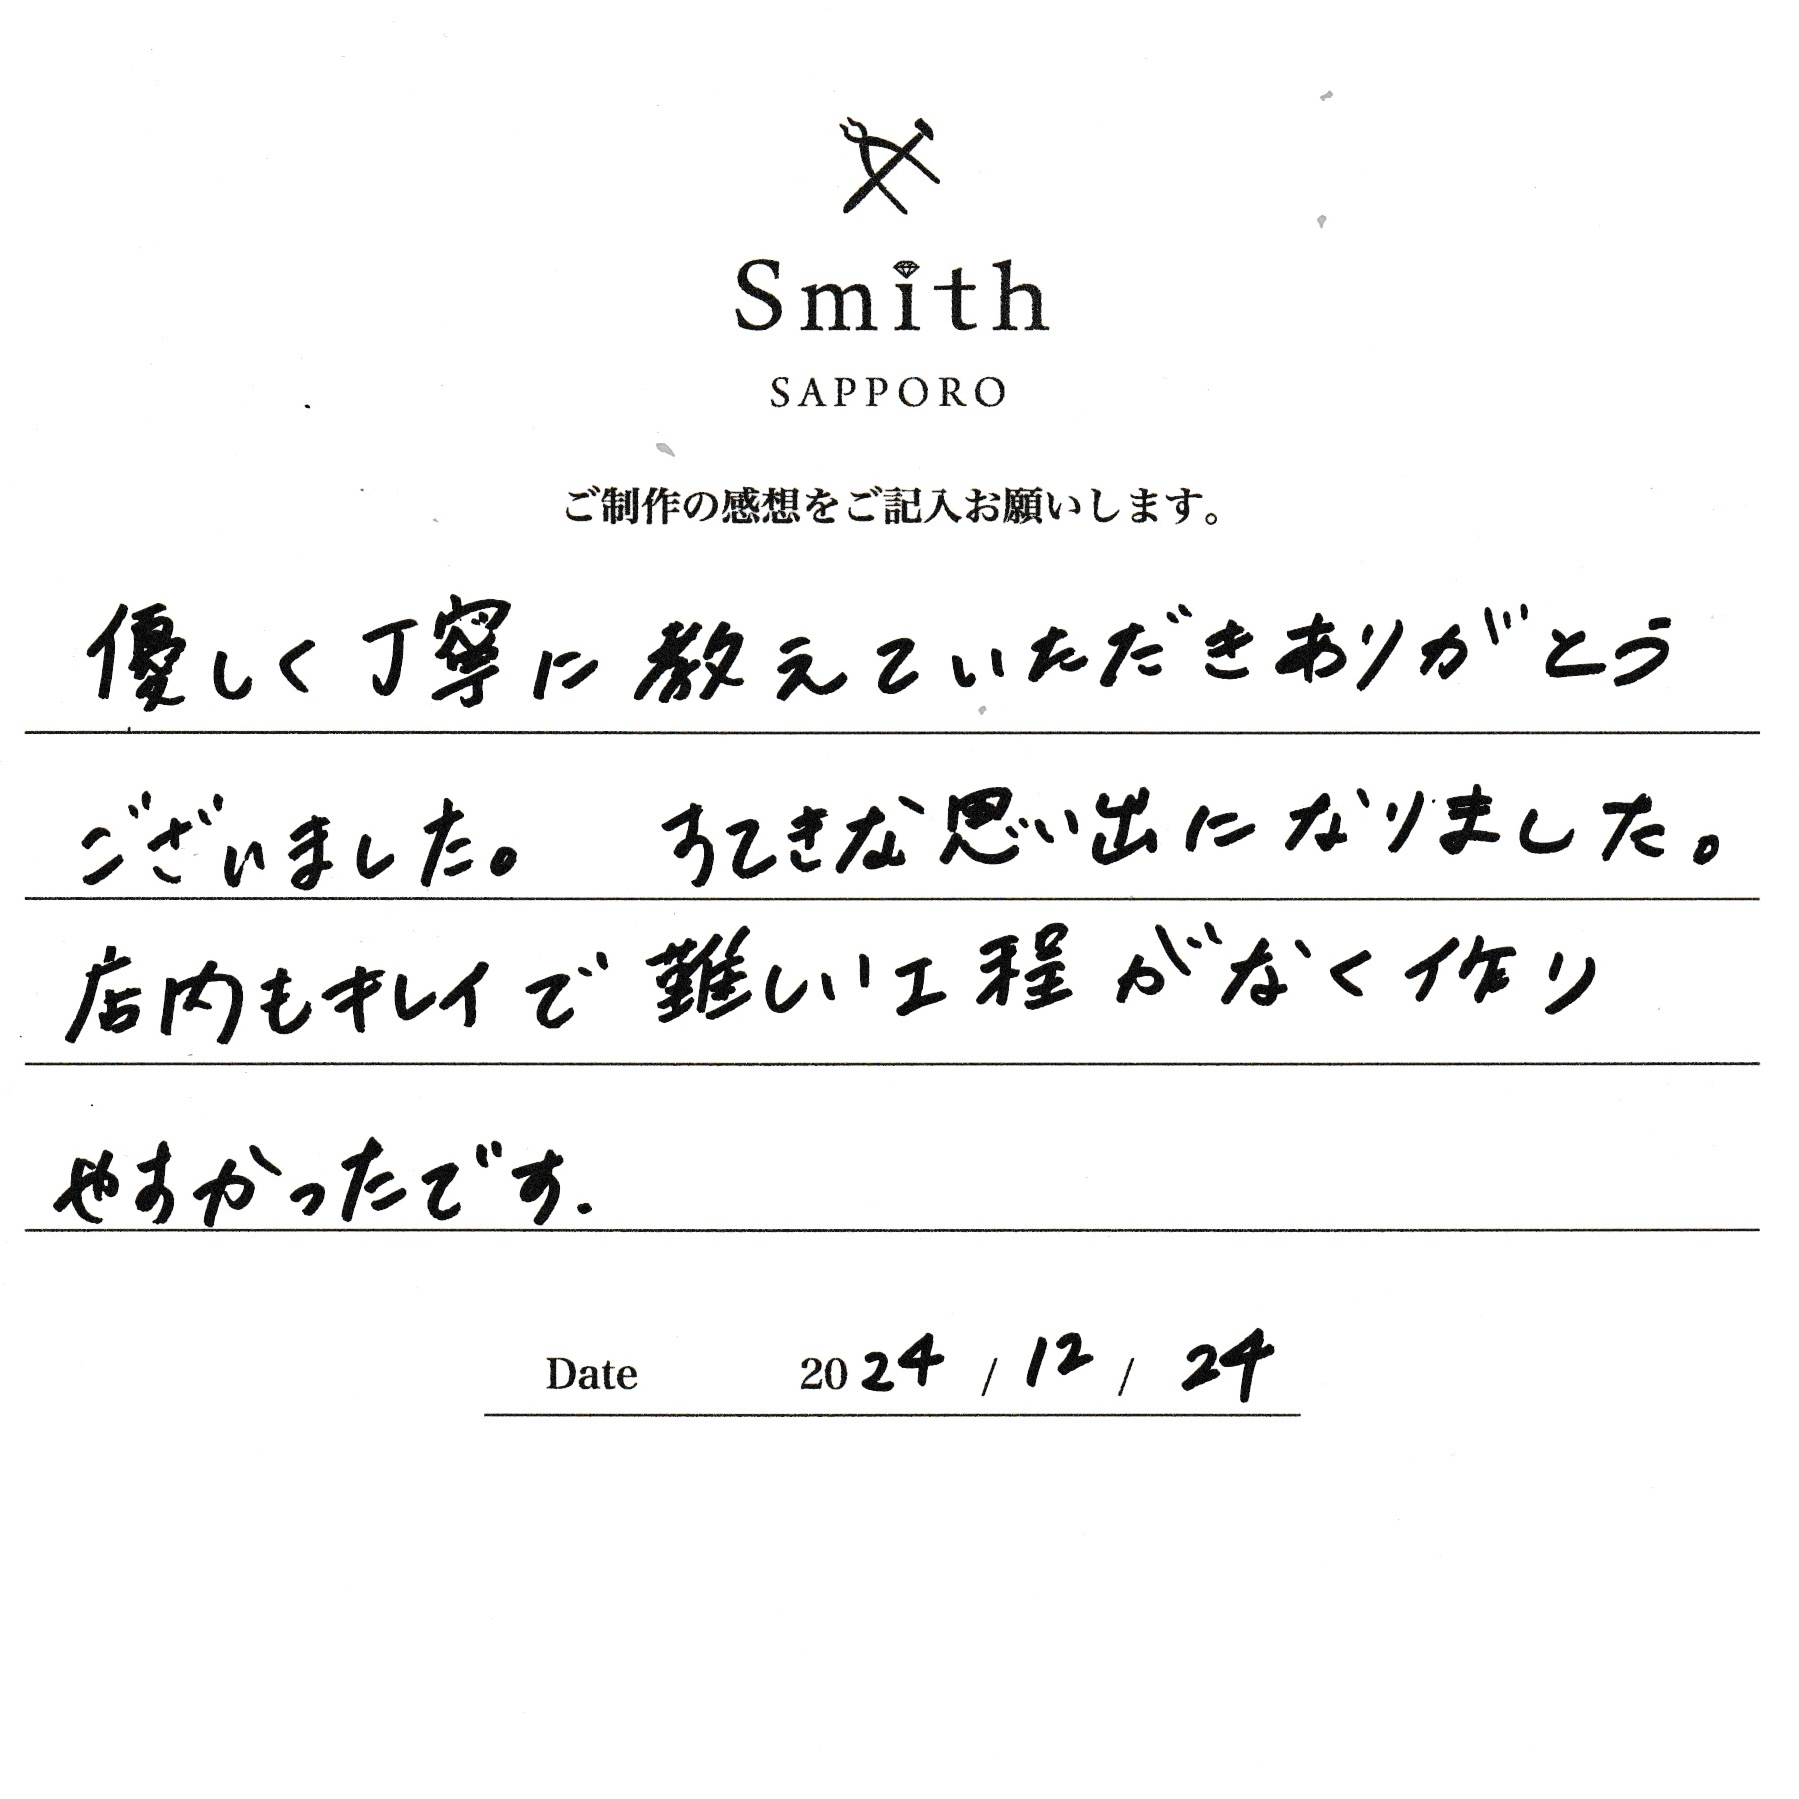 Smith
SAPPORO
ご制作の感想をご記入お願いします。
優しく丁寧に教えていただきありがとう
ございました。 すてきな思い出になりました。
店内もキレイで難しい工程がなく作り
やすかったです.
Date 2024 / 12 / 24